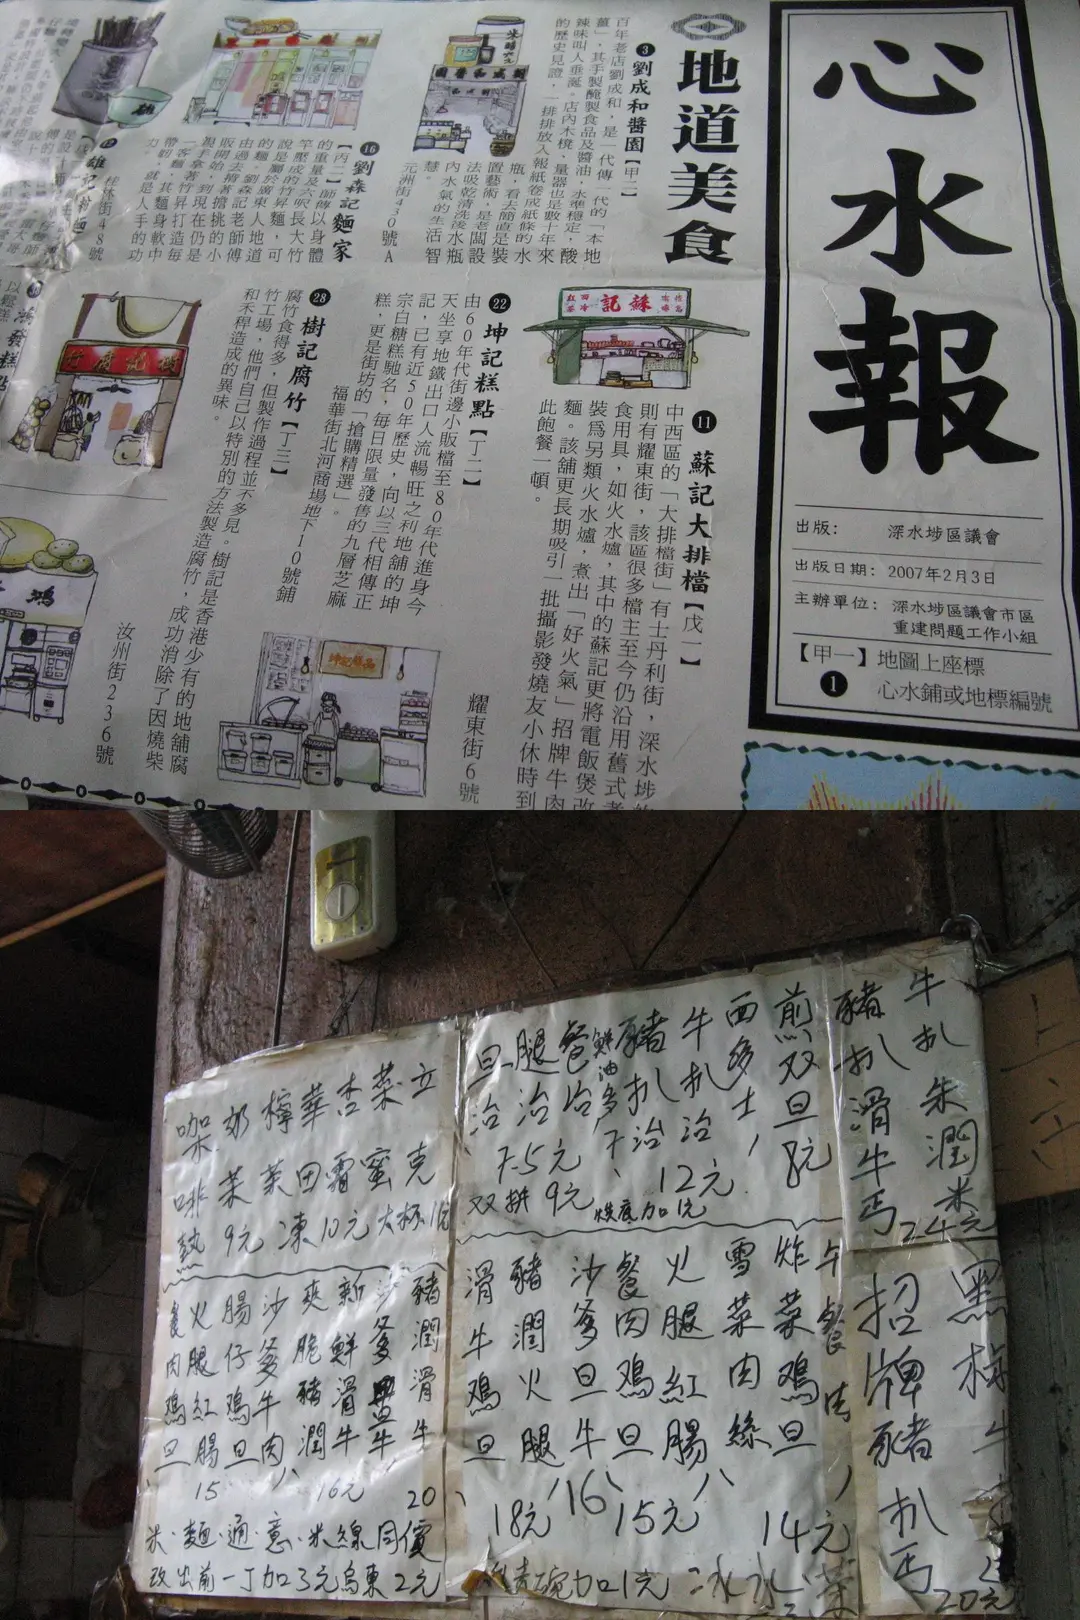 心水報
出版： 深水埗區議會
出版日期： 2007年2月3日
主辦單位： 深水埗區議會市區
重建問題工作小組
【甲一】地圖上座標
❶ 心水鋪或地標編號
地道美食
❸ 劉成和醬園【甲二】
百年老店劉成和，是一代傳一代的「本地
薑」，其手製醃製食品及醬油，水準穩定，酸
辣味叫人垂涎。店內木櫈、量器也是數十年來
的歷史見證，一排排放入報紙卷成紙條的水
瓶，看去簡直是裝
置藝術，是老闆設
法吸乾清洗後水瓶
內水氣的生活智
慧。
元洲街430號A
⓰ 劉森記麵家
【丙二】師傅以身體
的重量及六呎長大竹
竿壓成的竹昇麵，可
說是屬於廣東人地道
的麵。劉森記老師傅
由過去擔著擔挑的小
販開始，到現在仍是
親手拿著竹昇打造每
帶勁，其麵身軟中
力，就是人手的功
桂林街48號
⓫ 蘇記大排檔【戊一】
中西區的「大排檔街」有士丹利街，深水埗
則有耀東街，該區很多檔主至今仍沿用舊式煮
食用具，如火水爐，其中的蘇記更將電飯煲改
裝為另類火水爐，煮出「好火氣」招牌牛肉
麵。該舖更長期吸引一批攝影發燒友小休時到
此飽餐一頓。
耀東街6號
蘇記
㉒ 坤記糕點【丁二】
由60年代街邊小販檔至80年代進身今
天坐享地鐵出口人流暢旺之利地舖的坤
記，已有近50年歷史，向以三代相傳正
宗白糖糕馳名，每日限量發售的九層芝麻
糕，更是街坊的「搶購精選」。
福華街北河商場地下10號鋪
㉘ 樹記腐竹【丁三】
腐竹食得多，但製作過程並不多見。樹記是香港少有的地舖腐
竹工場，他們自己以特別的方法製造腐竹，成功消除了因燒柴
和禾稈造成的異味。
汝州街236號
牛扒朱潤米
豬扒滑牛丐
24元
煎双旦 8元
西多士
牛扒治
豬扒治
12元
鮮油多 7
餐治
腿治
旦治
7.5元
双拼 9元
烘底加1元
咖啡
奶茶
檸茶
華田
杏霜
菜蜜
立克
熱 9元 凍10元 大杯1元
午餐肉
炸菜鷄旦
14元
雪菜肉絲
火腿紅腸
餐肉鷄旦
15元
沙爹旦牛
16
豬潤火腿
滑牛鷄旦
18元
豬潤滑牛
20
新鮮滑牛
爽脆豬潤
16元
沙爹牛肉
腸仔鷄旦
火腿紅腸
餐肉鷄旦
15
米·麵·通·意·米線同價
改出前一丁加3元烏東2元
招牌豬扒丐
20元